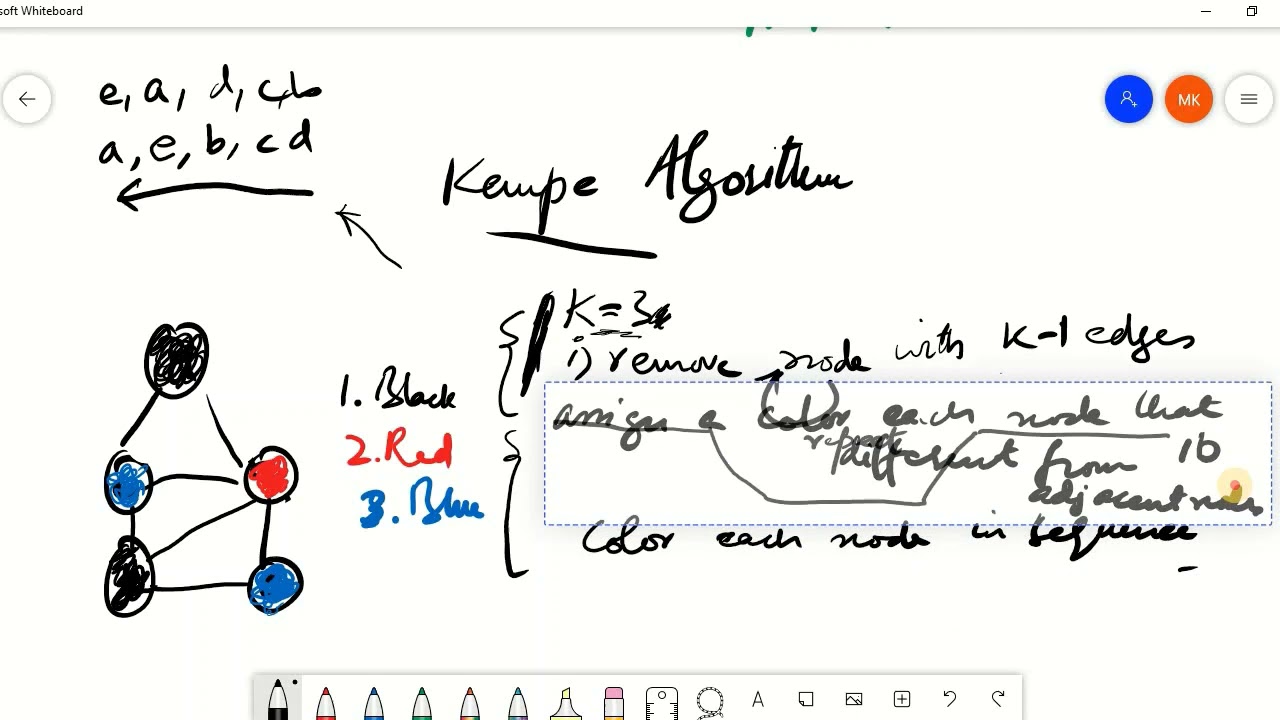 soft Whiteboard
MK
e, a, d, c, b
a, e, b, c d
Kempe Algorithm
K=3
i) remove node with K-1 edges
1. Black
2. Red
3. Blue
assign a color each node that
repeat
different from 16
adjacent nodes
Color each node in sequence
A